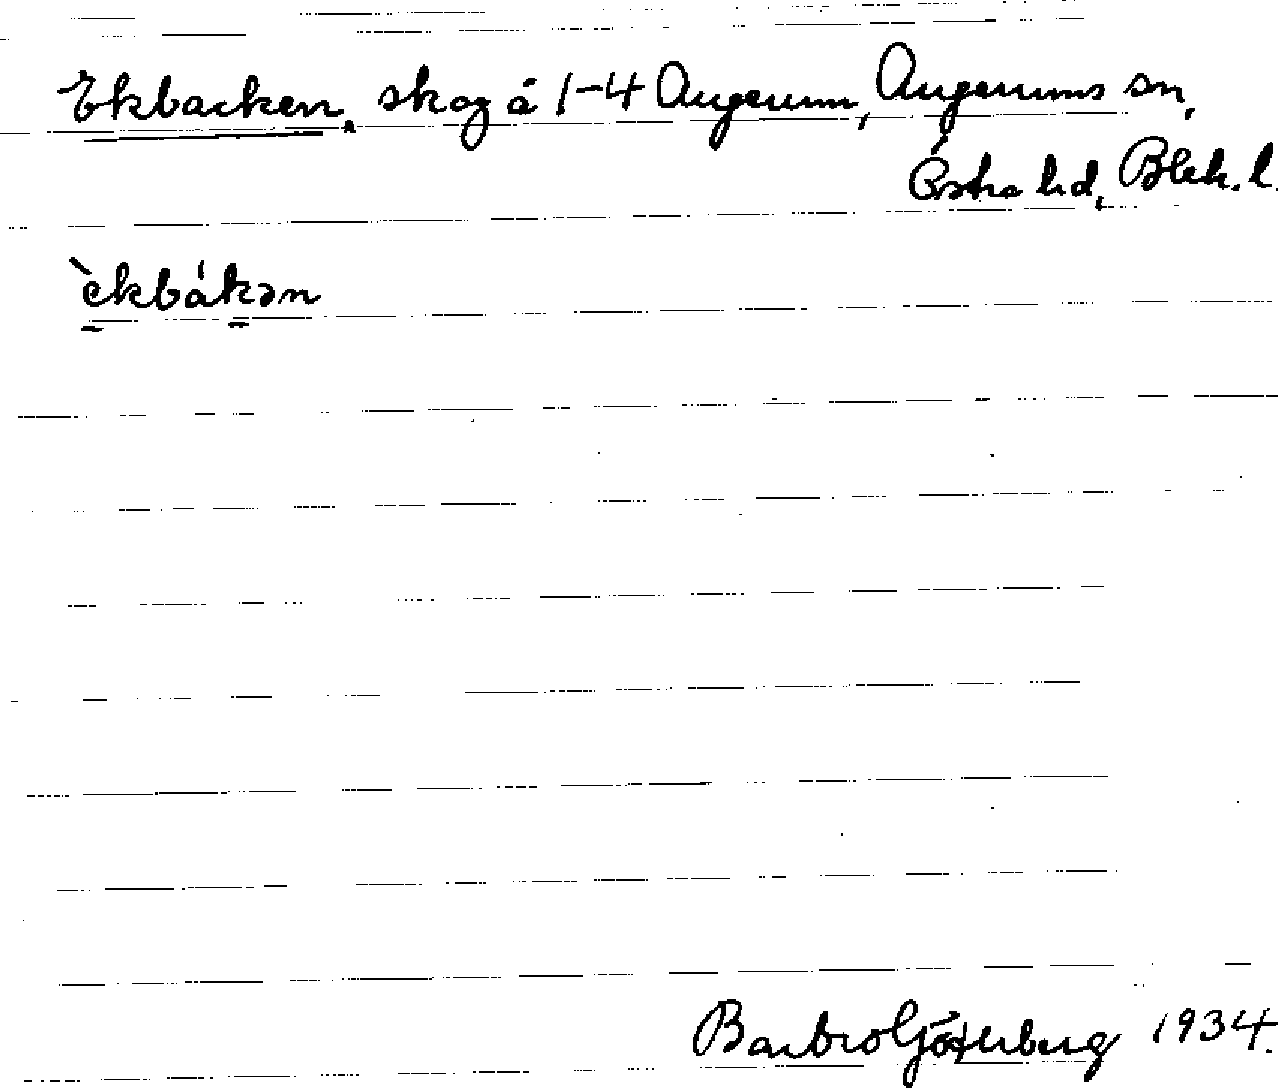 Ekbacken, skog å 1-4 Augerum, Augerums sn,
Östra hd, Blek. l.
èkbákən
Barbro Göterberg 1934.